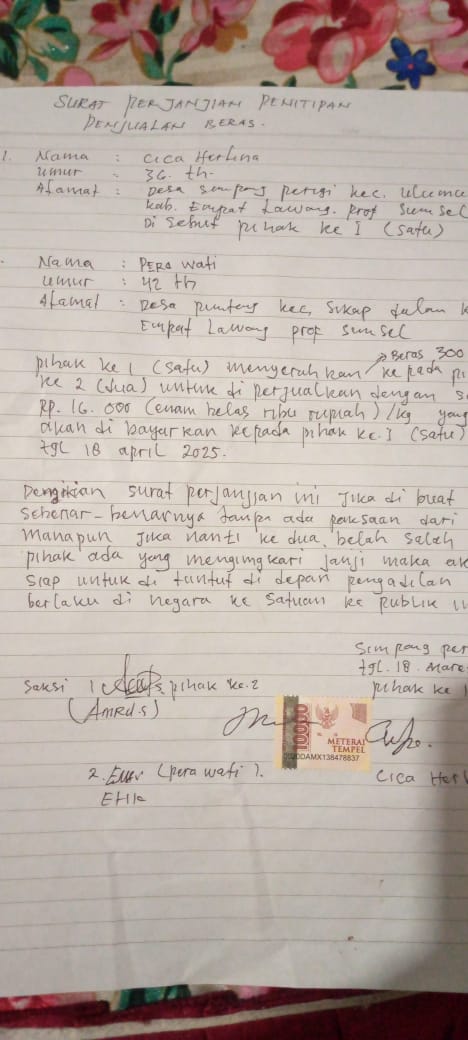 SURAT PERJANJIAN PENITIPAN
PENJUALAN BERAS.
1. Nama : Cica Herlina
umur : 36. th.
Alamat : Desa simpang perigi kec. ulumu
kab. Empat Lawang. prof Sumsel
Di sebut pihak ke I (satu)
Nama : PERA wati
umur : 42 th
Alamat : Desa puntang kec, sikap dalam k
Empat Lawang prof sumsel
Beras 300
pihak ke 1 (satu) menyerahkan kepada pi
ke 2 (dua) untuk di perjualkan dengan
RP. 16.000 (enam belas ribu rupiah) /kg yang
akan di bayarkan kepada pihak ke.I (satu)
tgl 18 april 2025.
Demikian surat perjanjian ini Jika di buat
sebenar-benarnya tanpa ada paksaan dari
manapun Jika nanti ke dua belah salah
pihak ada yang mengingkari janji maka ak
siap untuk di tuntut di depan pengadilan
berlaku di negara ke satuan re publik in
Simpang per
tgl. 18. Mare
Saksi 1 pihak ke.2 pihak ke 1
(AMRd.s)
10000
METERAI
TEMPEL
DAMX138478837
2. (pera wati). Cica Herl